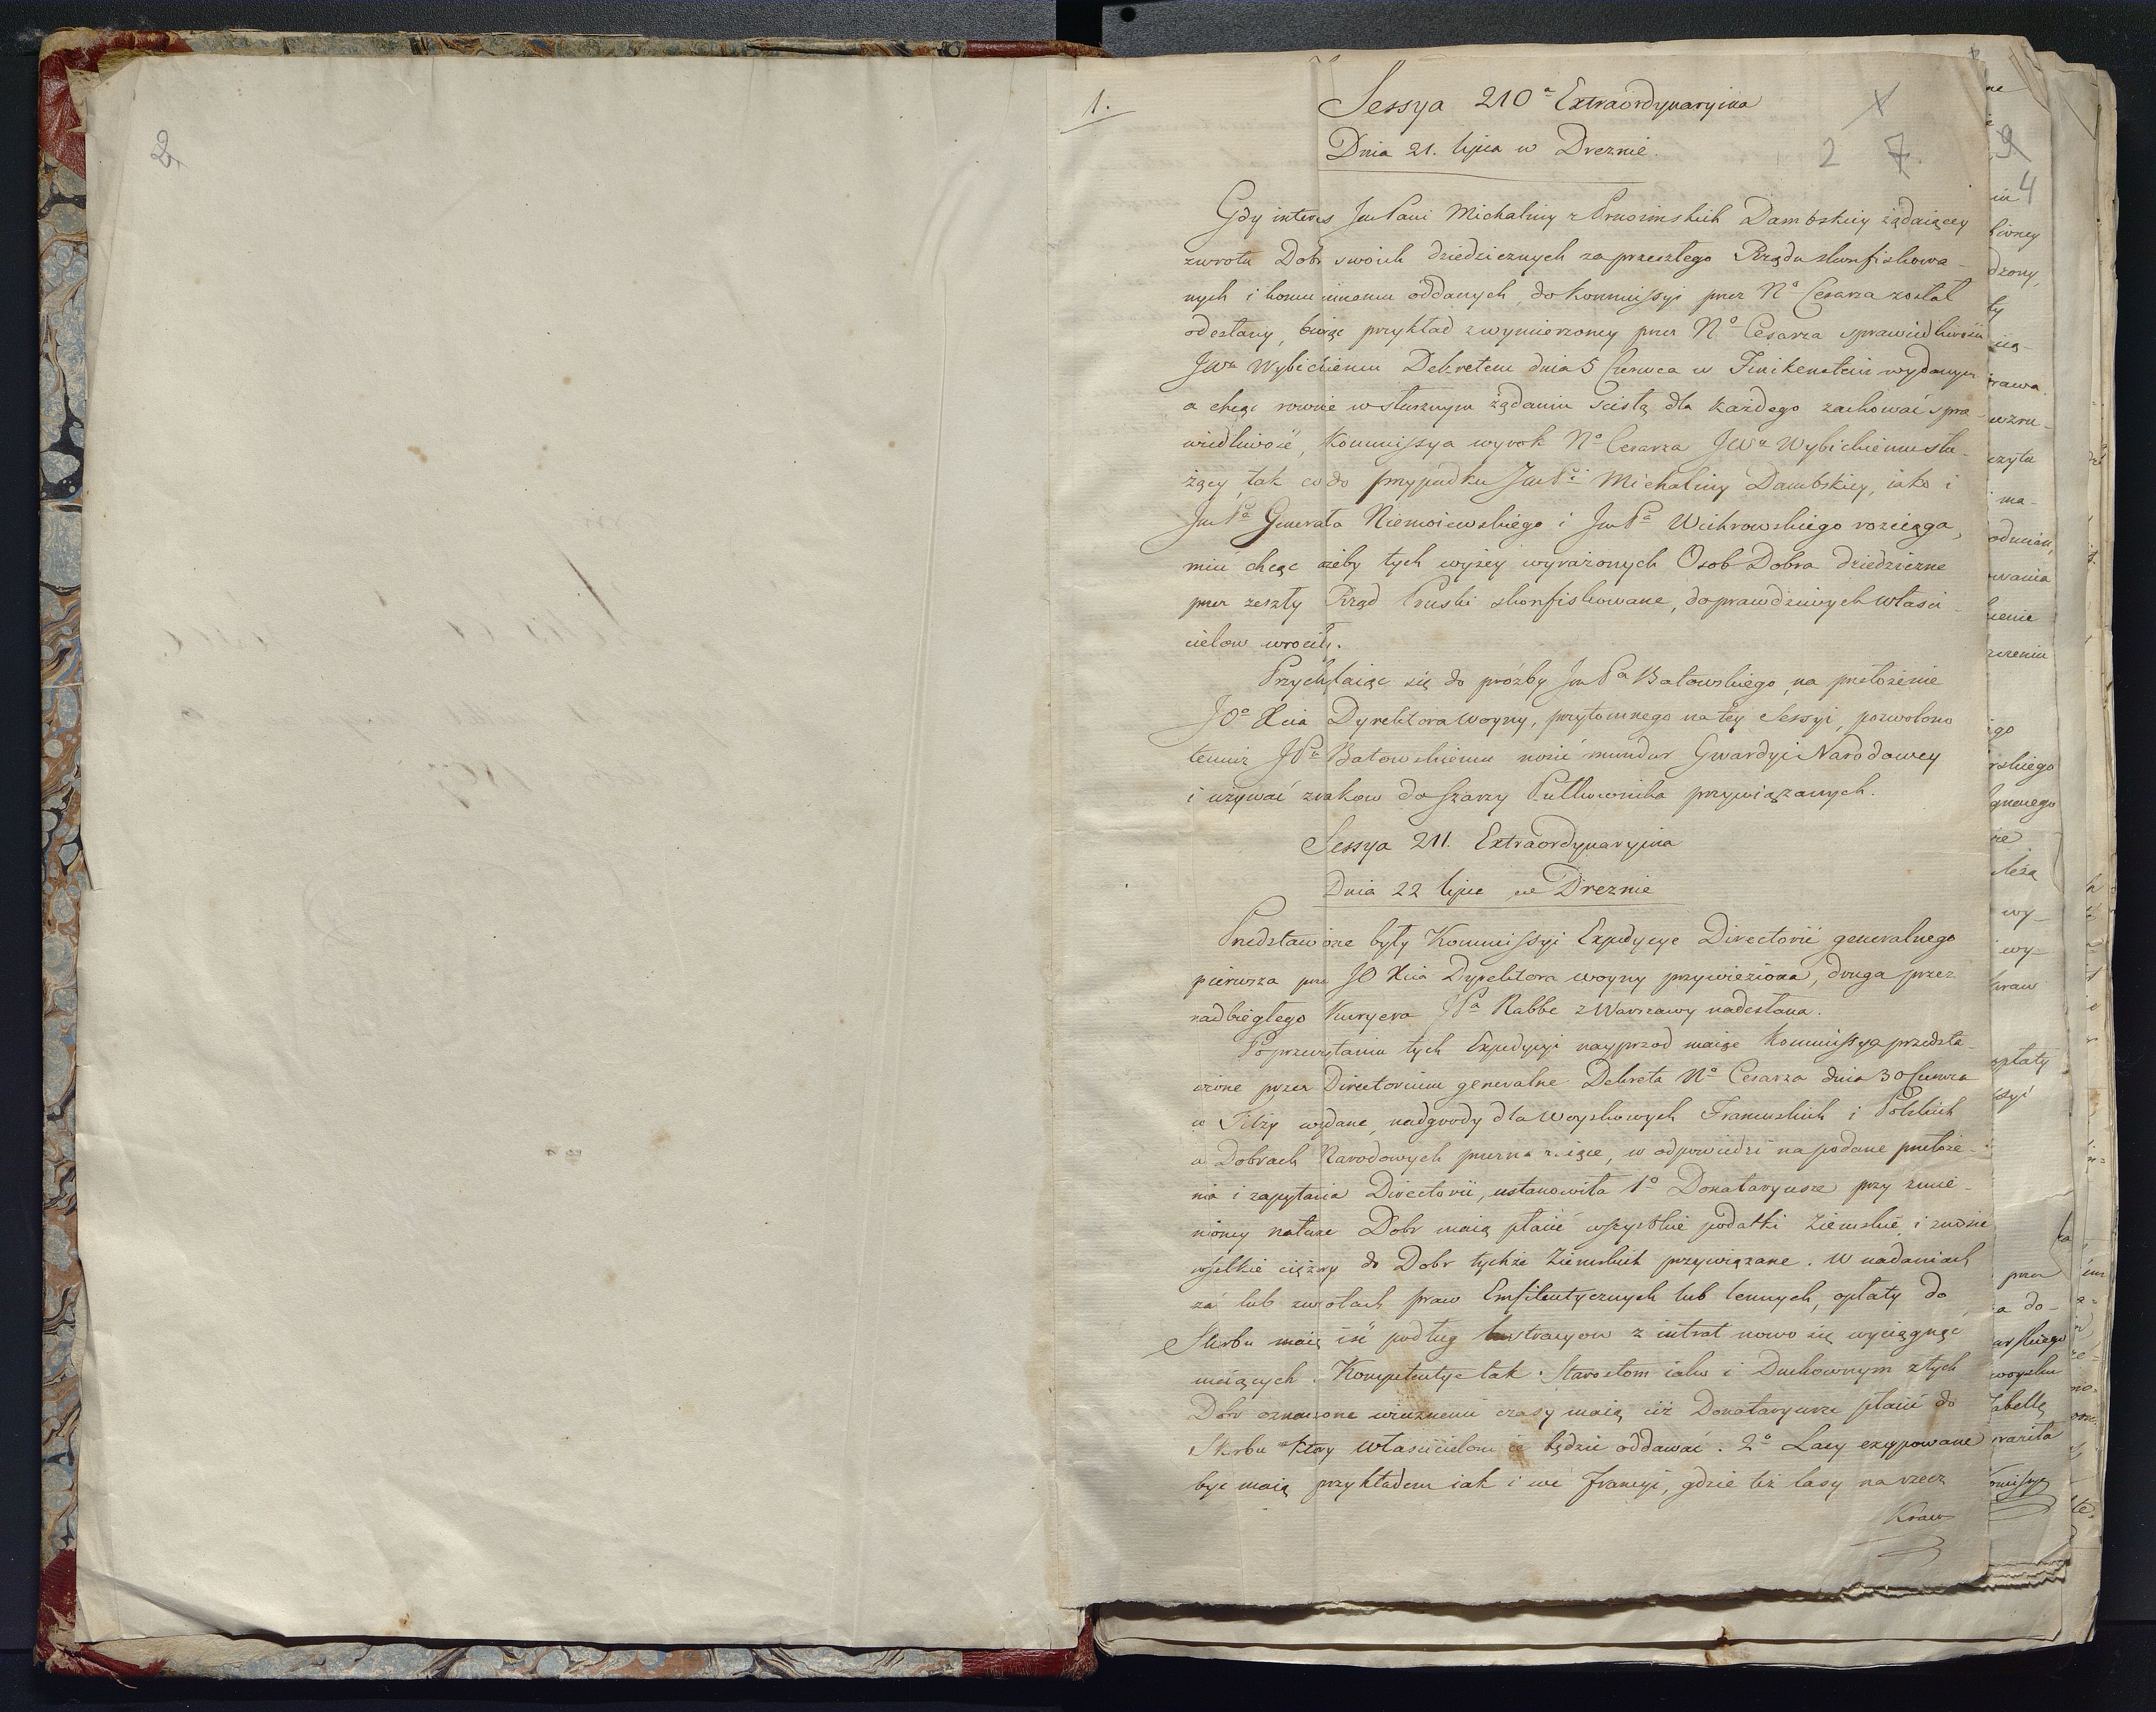 2.
1.
Sessya 210ª Extraordynaryina
Dnia 21. lipca w Dreznie.
2 7.
Gdy interes JmPani Michaliny z Prusimskich Dambskiey żądaiącey
zwrotu Dobr swoich dziedzicznych za przeszłego Rządu skonfiskowa-
nych i komu innemu oddanych, do Kommissyi przez Nº Cesarza został
odesłany, biorąc przykład z wymierzoney przez Nº Cesarza sprawiedliwości
JWu Wybickiemu Dekretem dnia 5 Czerwca w Finkenstein wydanym
a chcąc rownie w słusznym żądaniu scisłą dla każdego zachować spra-
wiedliwość, Kommissya wyrok Nº Cesarza JWu Wybickiemu słu-
żący, tak co do przypadku JmPi Michaliny Dambskiey, iako i
JmPª Generała Niemoiewskiego i JmPª Wichrowskiego rozciąga,
mieć chcąc ażeby tych wyżey wyrażonych Osob Dobra dziedziczne
przez zeszły Rząd Pruski skonfiskowane, do prawdziwych własci-
cielow wrociły.
Przychylaiąc się do proźby JmPª Batowskiego, na przełożenie
JOº Xcia Dyrektora woyny, przytomnego na tey Sessyi, pozwolono
temuż JPu Batowskiemu nosić mundur Gwardyi Narodowey
i używać znakow do szarży Pułkownika przywiązanych.
Sessya 211. Extraordynaryina
Dnia 22 lipca w Dreznie
Przedstawione były Kommissyi Expedycye Directorii generalnego
pierwsza przez JO Xcia Dyrektora woyny przywieziona, druga przez
nadbiegłego Kuryera JPª Rabbe z Warszawy nadesłana.
Po przeczytaniu tych Expedycyi nayprzod maiąc Kommissya przedsta-
wione przez Directorium generalne Dekreta Nº Cesarza dnia 30 Czerwca
w Tilży wydane, nadgrody dla Woyskowych Francuskich i Polskich
w Dobrach Narodowych przeznaczaiące, w odpowiedzi na podane przełoże-
nia i zapytania Directorii, ustanowiła 1º Donataryusze przy zmie-
nioney naturze Dobr maią płacić wszystkie podatki Ziemskie, i znosić
wszelkie ciężary do Dobr tychże Ziemskich przywiązane. W nadaniach
zaś lub zwrotach praw Emfiteutycznych lub lennych, opłaty do
Skarbu maią iść podług lustracyow z intrat nowo się wyciągnąć
maiących. Kompetencye tak Starostom iako i Duchownym z tych
Dobr oznaczone wiecznemi czasy maią ciż Donataryusze płacić do
Skarbu który właścicielom ie będzie oddawać. 2º Lasy excypowane
być maią przykładem iak i we Francyi, gdzie też lasy na rzecz
Kraw
4